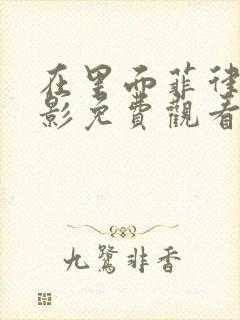 在里面菲律
影免費觀看
九鷺非香